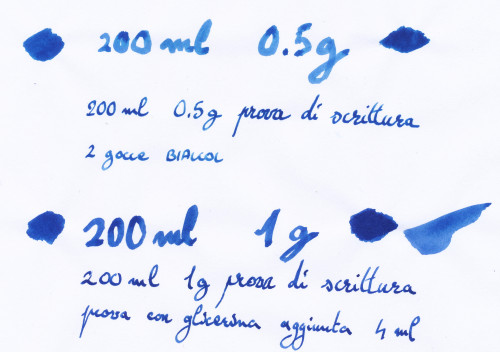 200 ml 0.5g
200 ml 0.5g prova di scrittura
2 gocce BIALCOL
200 ml 1g
200 ml 1g prova di scrittura
prova con glicerina aggiunta 4 ml